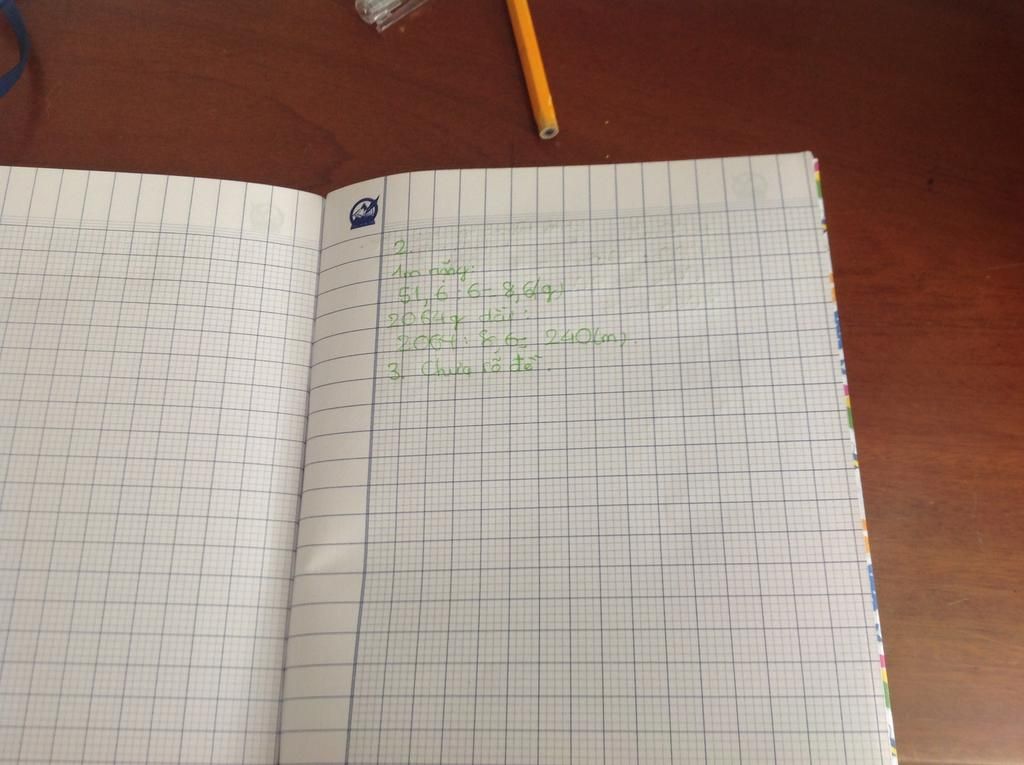 2.
1m nặng:
51,6 : 6 = 8,6(g)
2064g dài:
2064 : 8,6 = 240(m).
3. Chưa rõ đề.